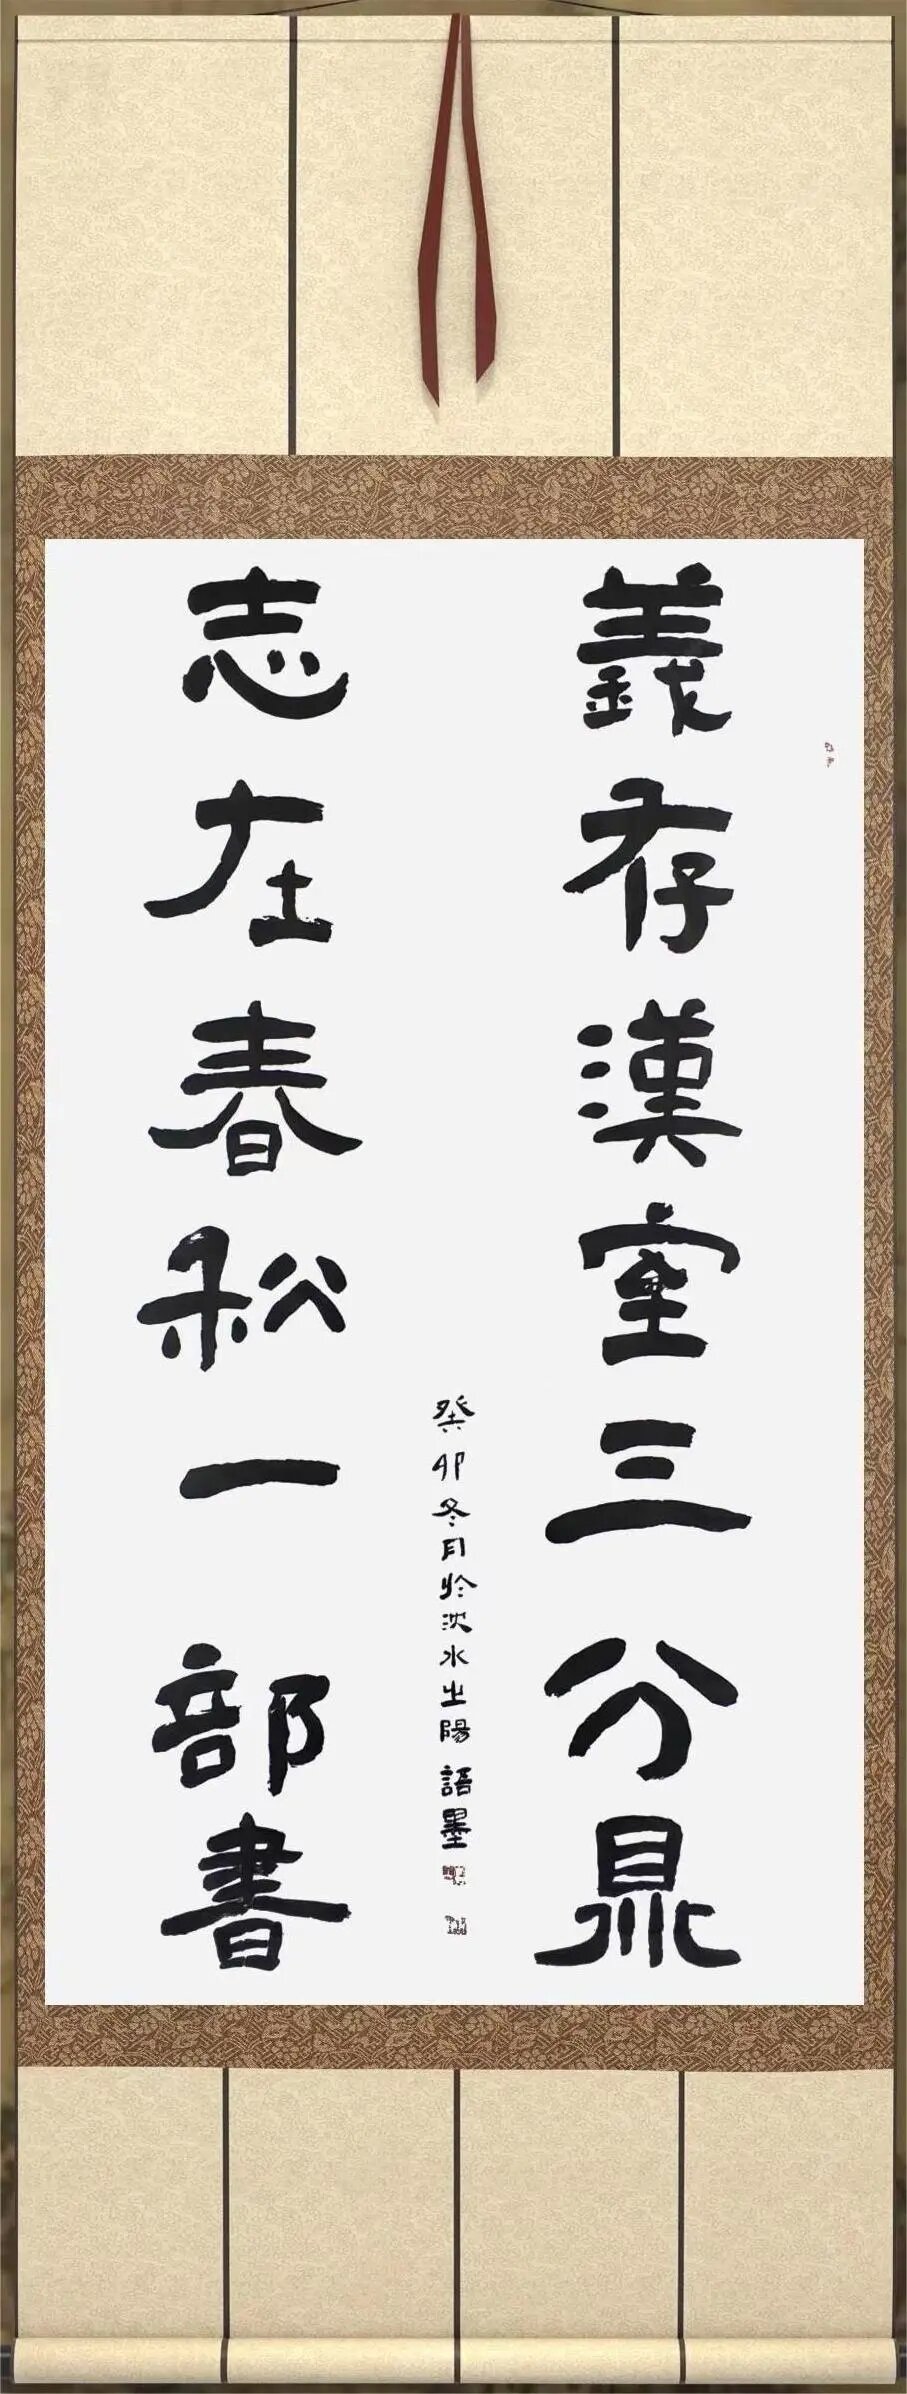 義存漢室三分鼎
志在春秋一部書
癸卯冬月於淡水之陽 語墨